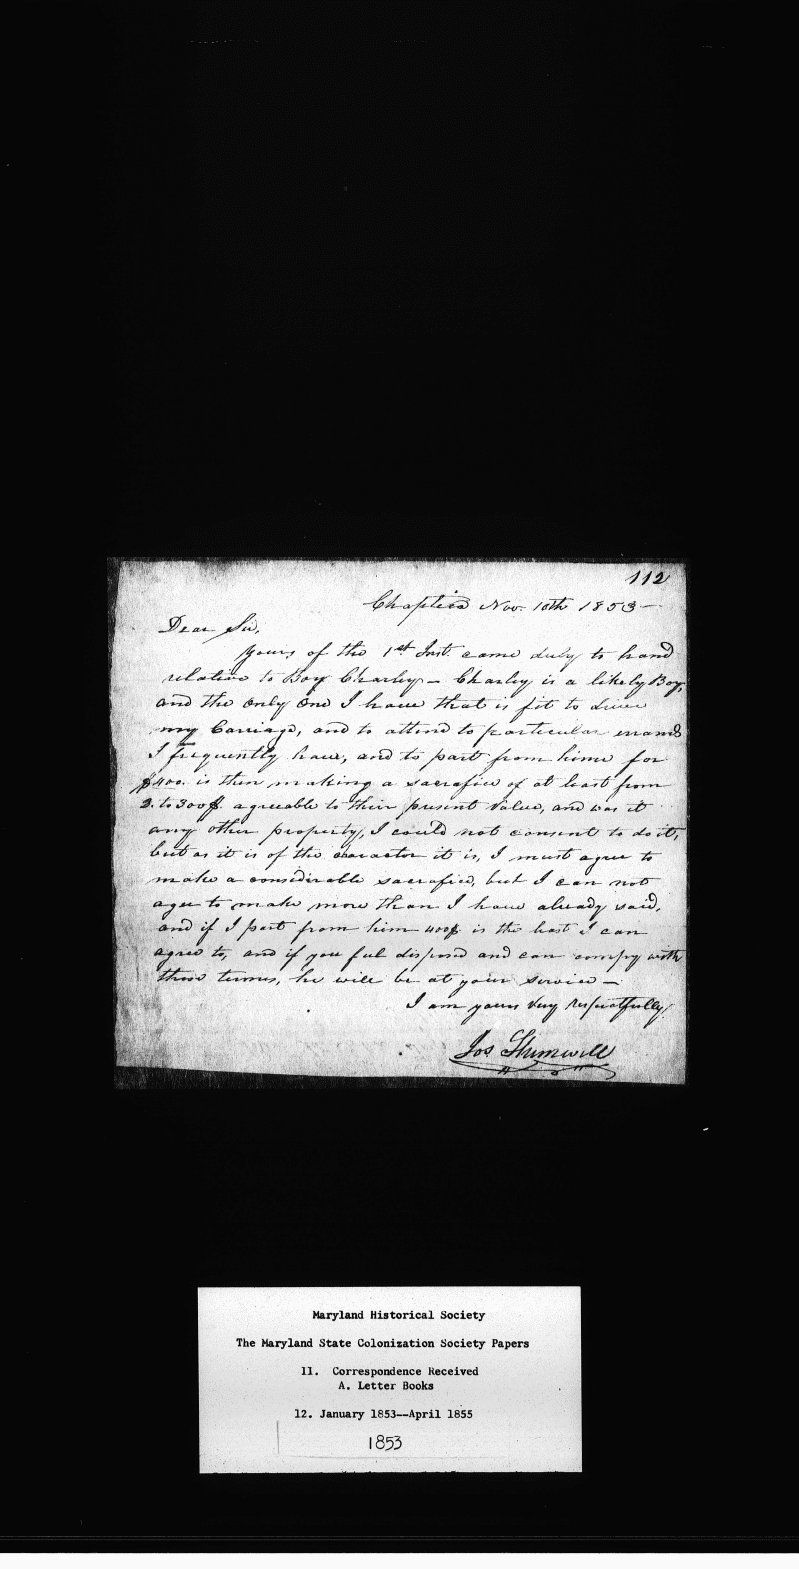 112
Chaptico Nov. 10th 1853—
Dear Sir,
Yours of the 1st Inst. came duly to hand
relative to Boy Charley – Charley is a likely Boy,
and the only one I have that is fit to drive
my Carriage, and to attend to particular errands
I frequently have, and to part from him for
$400. is then making a sacrafice of at least from
2. to 300$ agreable to their present value, and was it
any other property, I could not consent to do it,
but as it is of the caracter it is, I must agree to
make a considerable sacrafice, but I can not
agee to make more than I have already said,
and if I part from him 400$ is the least I can
agree to, and if you feel disposed and can comply with
these terms, he will be at your service –
I am yours very respectfully,
Jos
Maryland Historical Society
The Maryland State Colonization Society Papers
11. Correspondence Received
A. Letter Books
12. January 1853--April 1855
1853